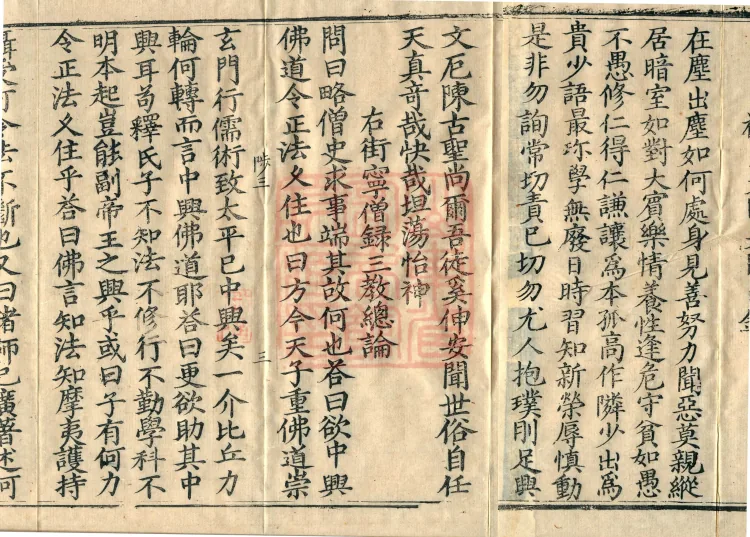 在塵出塵如何處身見善努力聞惡莫親縱
居暗室如對大賓樂情養性逢危守貧如愚
不愚修仁得仁謙讓爲本孤高作隣少出爲
貴少語最珎學無廢日時習知新榮辱慎動
是非勿詢常切責已切勿尤人抱璞刖足興
文厄陳古聖尚爾吾徒奚伸安聞世俗自任
天真奇哉快哉坦蕩怡神
右街寧僧録三教總論
問曰略僧史求事端其故何也荅曰欲中興
佛道令正法久住也曰方今天子重佛道崇
三
玄門行儒術致太平已中興矣一介比丘力
輪何轉而言中興佛道耶荅曰更欲助其中
興耳苟釋氏子不知法不修行不勤學科不
明本起豈能副帝王之興乎或曰子有何力
令正法久住乎荅曰佛言知法知摩夷護持
可令法不斷也又曰諸師已廣著述何